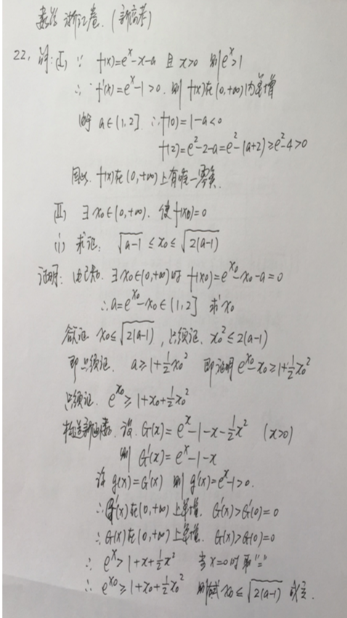 数学 浙江卷. (新高考)
22. 解: (I) ∵ f(x)=e^x-x-a 且 x>0 则 e^x>1
∴ f'(x)=e^x-1>0. 则 f(x)在(0,+∞)内单增
由于 a∈(1,2] ∴ f(0)=1-a<0
f(2)=e^2-2-a=e^2-(a+2)≥e^2-4>0
因此 f(x)在(0,+∞)上有唯一零点.
(II) ∃ x₀∈(0,+∞). 使 f(x₀)=0
(i) 求证: √(a-1) ≤x₀≤ √(2(a-1))
证明: 由已知. ∃ x₀∈(0,+∞)时 f(x₀)=e^x₀-x₀-a=0
∴ a=e^x₀-x₀∈(1,2] 求 x₀
欲证 x₀≤√(2(a-1)), 只须证. x₀²≤2(a-1)
即只须证. a≥1+½x₀² 即证明 e^x₀-x₀≥1+½x₀²
只须证. e^x₀≥1+x₀+½x₀²
构造新函数. 设 G(x)=e^x-1-x-½x² (x>0)
则 G'(x)=e^x-1-x
设 g(x)=G'(x) 则 g'(x)=e^x-1>0.
∴ G'(x)在(0,+∞)上单增. G'(x)>G'(0)=0
∴ G(x)在(0,+∞)上单增. G(x)>G(0)=0
∴ e^x>1+x+½x² 当x=0时取"="
∴ e^x₀≥1+x₀+½x₀² 则 x₀≤√(2(a-1)) 成立.